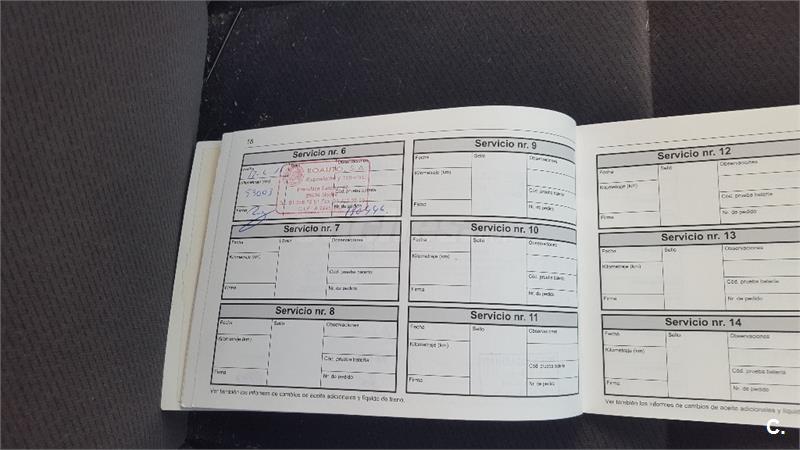 Servicio nr. 6
Fecha Sello Observaciones
Kilometraje (km)
53003
Cód. prueba batería
Firma Nr. de pedido
Servicio nr. 7
Fecha Sello Observaciones
Kilometraje (km)
Cód. prueba batería
Firma Nr. de pedido
Servicio nr. 8
Fecha Sello Observaciones
Kilometraje (km)
Cód. prueba batería
Firma Nr. de pedido
Ver también los informes de cambios de aceite adicionales y líquido de freno.
Servicio nr. 9
Fecha Sello Observaciones
Kilometraje (km)
Cód. prueba batería
Firma Nr. de pedido
Servicio nr. 10
Fecha Sello Observaciones
Kilometraje (km)
Cód. prueba batería
Firma Nr. de pedido
Servicio nr. 11
Fecha Sello Observaciones
Kilometraje (km)
Cód. prueba batería
Firma Nr. de pedido
Servicio nr. 12
Fecha Sello Observaciones
Kilometraje (km)
Cód. prueba batería
Firma Nr. de pedido
Servicio nr. 13
Fecha Sello Observaciones
Kilometraje (km)
Cód. prueba batería
Firma Nr. de pedido
Servicio nr. 14
Fecha Sello Observaciones
Kilometraje (km)
Cód. prueba batería
Firma Nr. de pedido
Ver también los informes de cambios de aceite adicionales y líquido
C.